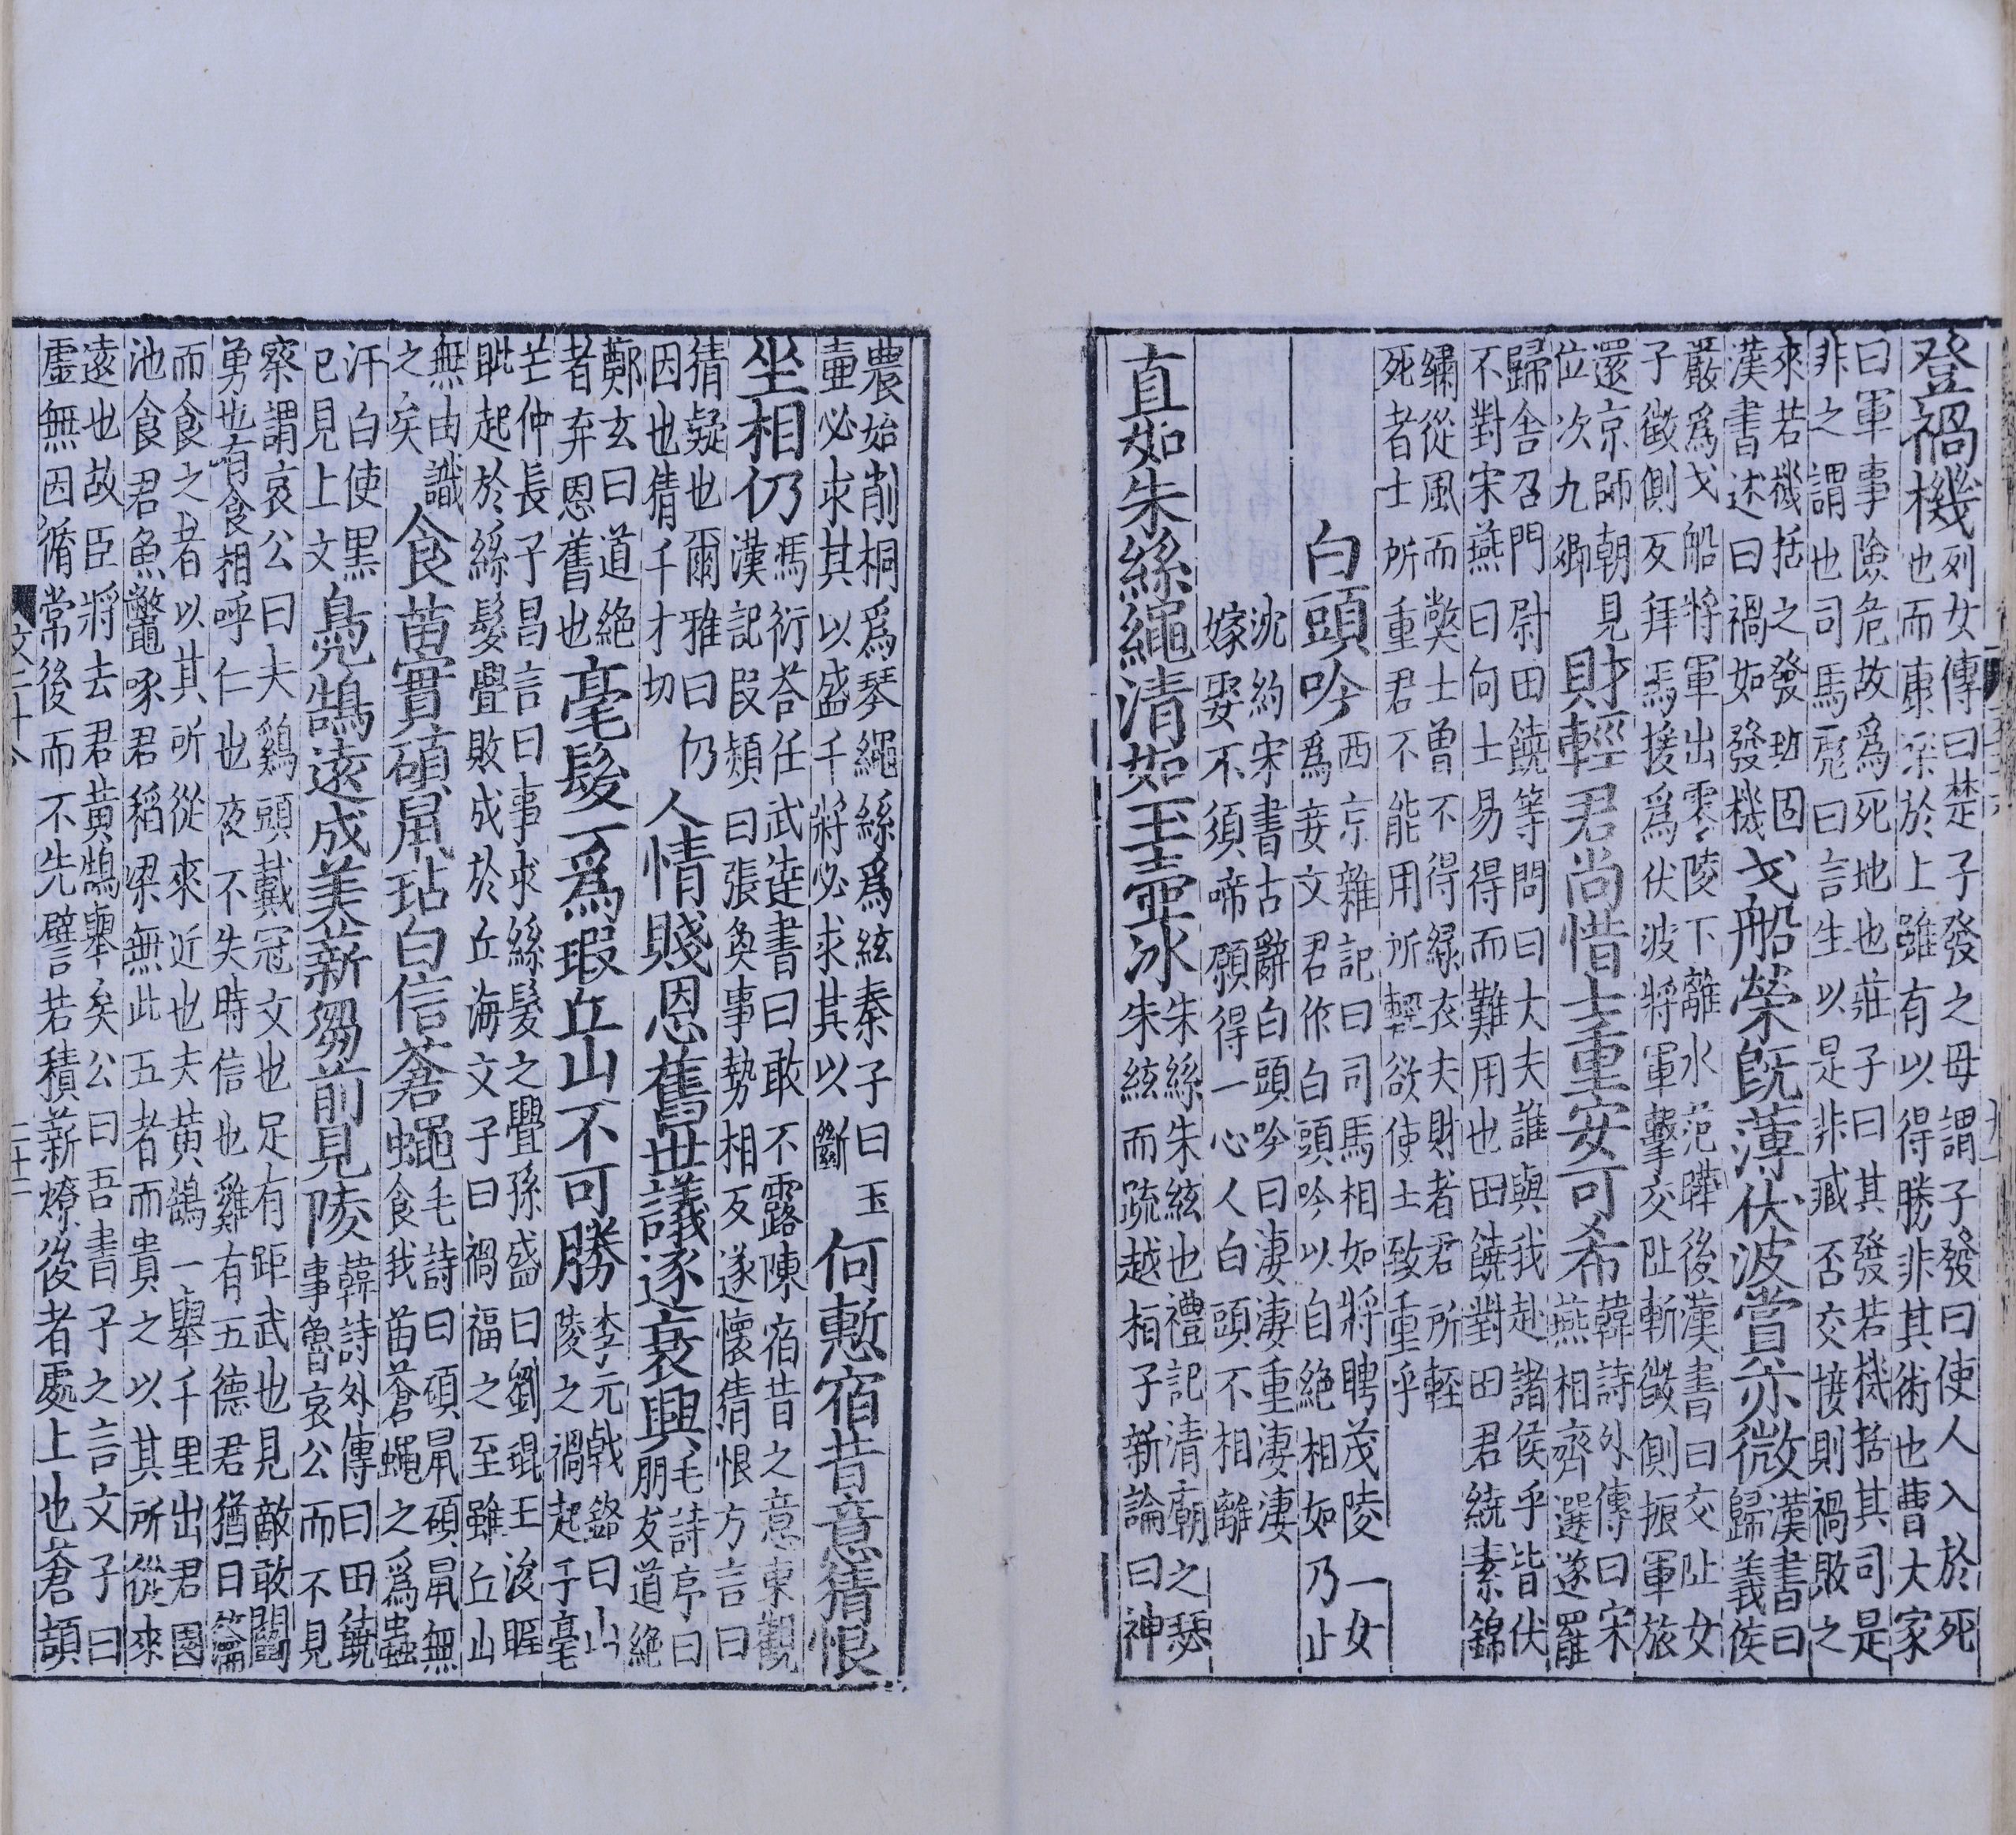 登禍機
列女傳曰楚子發之母謂子發曰使人入於死
也而康樂於上雖有以得勝非其術也曹大家
曰軍事險危故爲死地也莊子曰其發若機括其司是
非之謂也司馬彪曰言生以是非臧否交接則禍敗之
來若機括之發班固
漢書述曰禍如發機
戈船榮旣薄伏波賞亦微
漢書曰
歸義侯
嚴爲戈船將軍出零陵下離水范曄後漢書曰交阯女
子徵側反拜馬援爲伏波將軍擊交阯斬徵側振軍旅
還京師朝見
位次九卿
財輕君尚惜士重安可希
韓詩外傳曰宋
燕相齊選遂罷
歸舍召門尉田饒等問曰大夫誰與我赴諸侯乎皆伏
不對宋燕曰何士易得而難用也田饒對田君綺素錦
繡從風而獘士曾不得緣衣夫財者君所輕
死者士所重君不能用所輕欲使士致重乎
白頭吟
西京雜記曰司馬相如將聘茂陵一女
爲妾文君作白頭吟以自絕相如乃止
沈約宋書古辭白頭吟曰淒淒重淒淒
嫁娶不須啼願得一心人白頭不相離
直如朱絲繩清如玉壺冰
朱絲朱絃也禮記清廟之瑟
朱絃而疏越桓子新論曰神
農始削桐爲琴繩絲爲絃秦子曰玉
壷必求其以盛干將必求其以斷
何慙宿昔意猜恨
坐相仍
馮衍荅任武達書曰敢不露陳宿昔之意東觀
漢記段熲曰張奐事勢相反遂懷猜恨方言曰
猜疑也爾雅曰仍
因也猜千才切
人情賤恩舊世議逐衰興
毛詩序曰
朋友道絕
鄭玄曰道絕
者弃恩舊也
毫髮一爲瑕丘山不可勝
李元戟銘曰山
陵之禍起于毫
芒仲長子昌言曰事求絲髮之釁孫盛曰劉琨王浚睚
眦起於絲髮釁敗成於丘海文子曰禍福之至雖丘山
無由識
之矣
食苗實碩鼠玷白信蒼蠅
毛詩曰碩鼠碩鼠無
食我苗蒼蠅之爲蟲
汗白使黑
已見上文
鳧鵠遠成美薪芻前見陵
韓詩外傳曰田饒
事魯哀公而不見
察謂哀公曰夫鷄頭戴冠文也足有距武也見敵敢鬭
勇也有食相呼仁也夜不失時信也雞有五德君猶日瀹
而食之者以其所從來近也夫黃鵠一舉千里出君園
池食君魚鼈啄君稻梁無此五者而貴之以其所從來
遠也故臣將去君黃鵠舉矣公曰吾書子之言文子曰
虛無因循常後而不先譬若積薪燎後者處上也蒼頡
文二十八
二十二